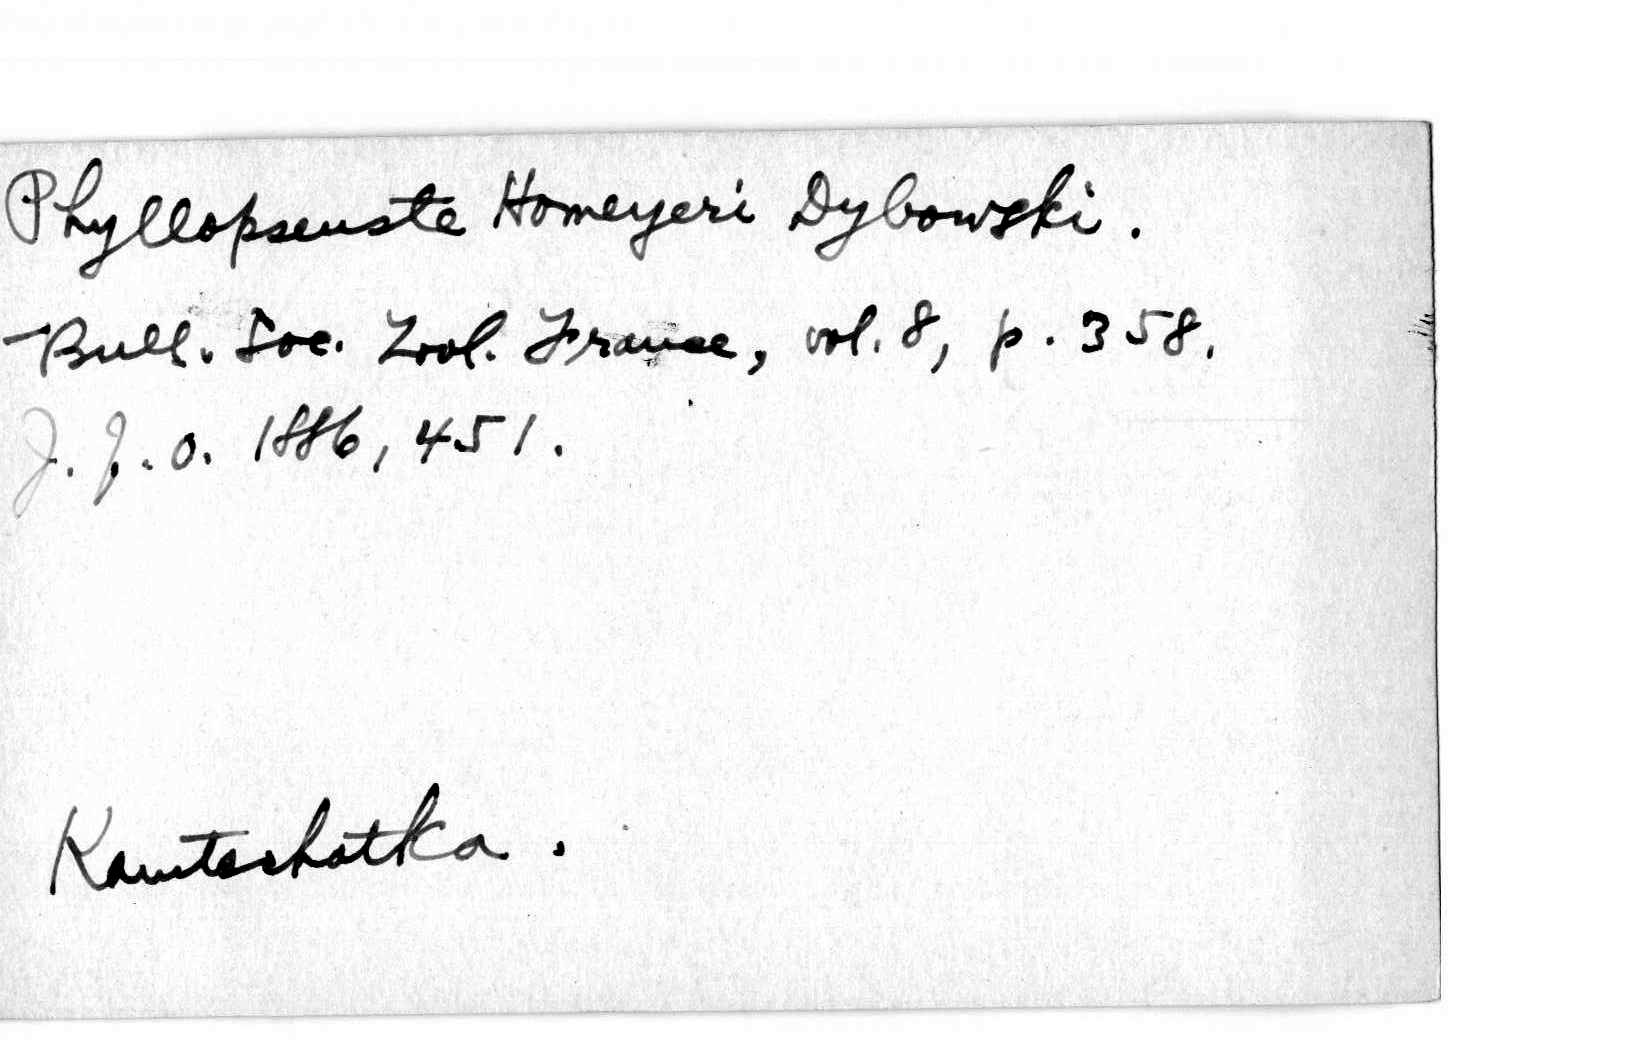 Phyllopseuste Homeyeri Dybowski.
Bull. Soc. Zool. France, vol. 8, p. 358.
J. f. O. 1886, 451.
Kamtschatka.